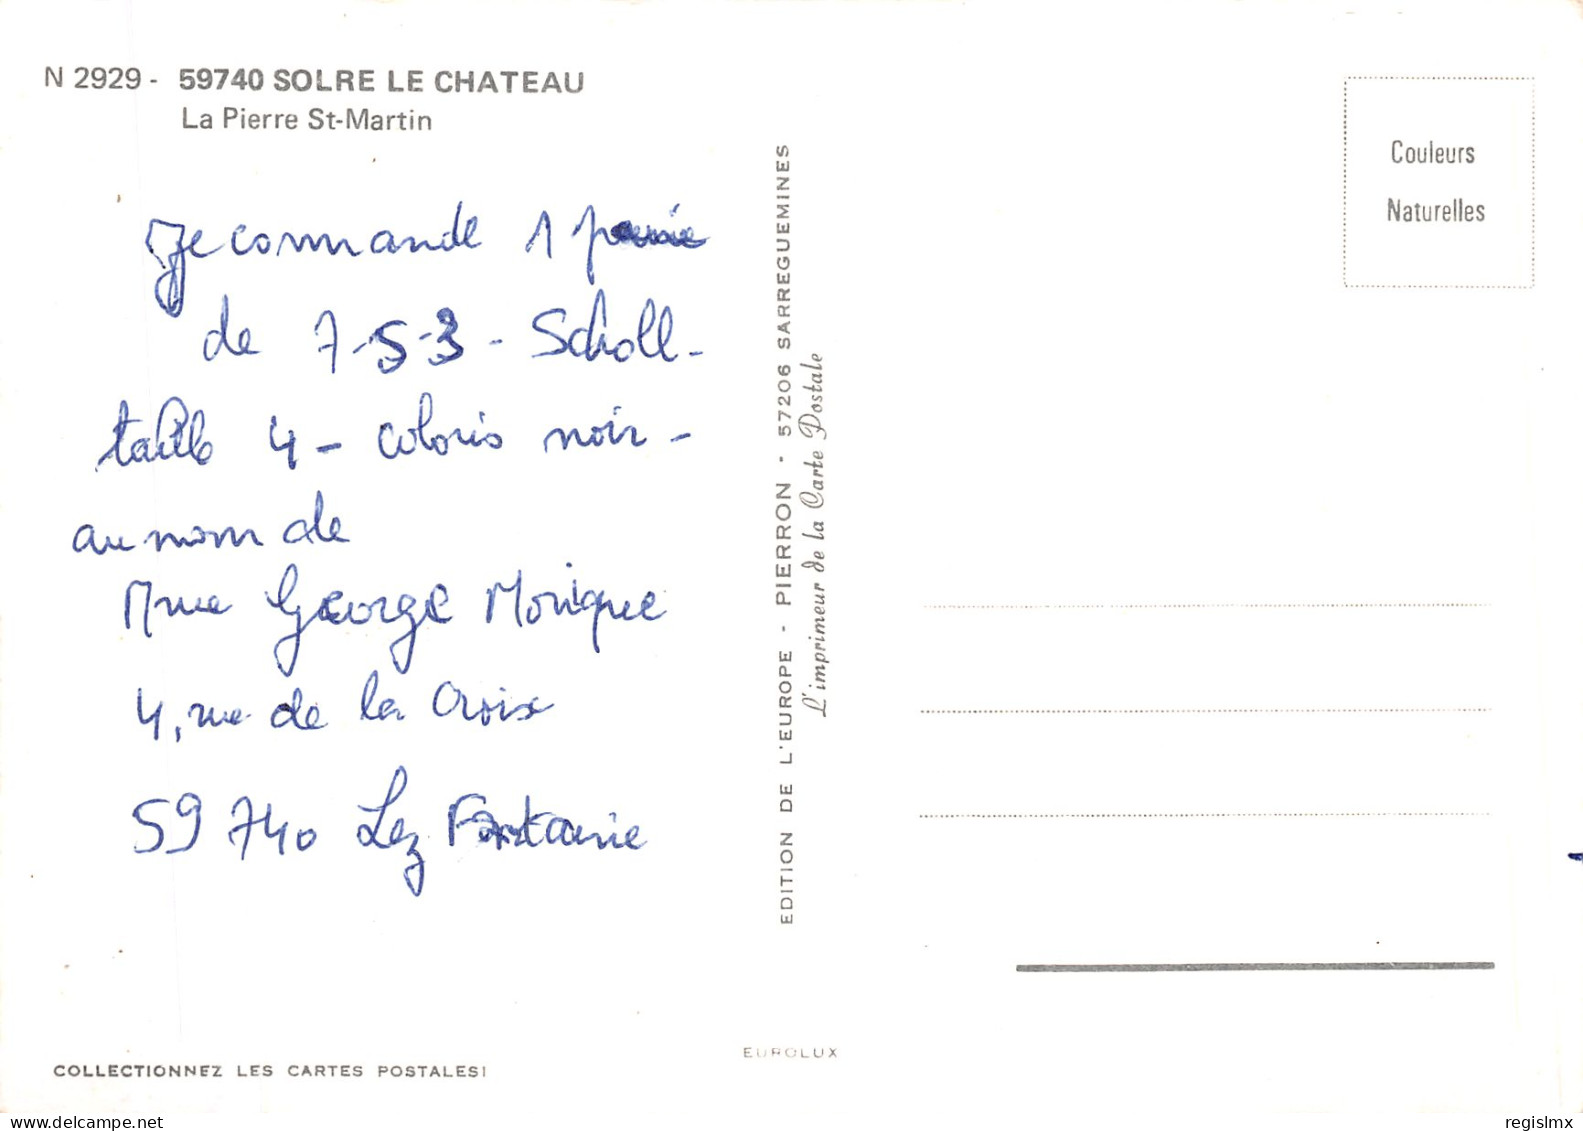 N 2929 - 59740 SOLRE LE CHATEAU
La Pierre St-Martin
Je commande 1 paire
de 7-5-3 - Scholl -
taille 4 - coloris noir -
au nom de
Mme George Monique
4, rue de la Croix
59 740 Lez Fontaine
COLLECTIONNEZ LES CARTES POSTALES!
EDITION DE L'EUROPE - PIERRON - 57206 SARREGUEMINES
L'imprimeur de la Carte Postale
EUROLUX
Couleurs
Naturelles
regislmx
delcampe.net